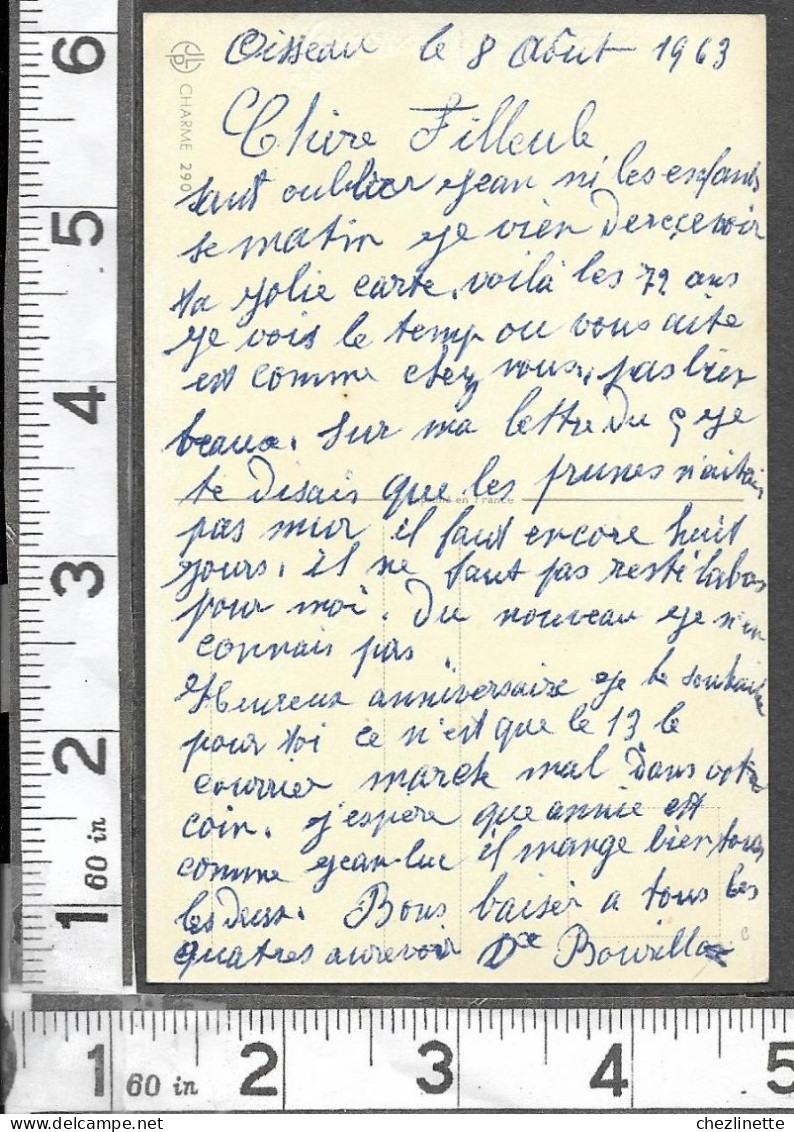 Oisseau le 8 Août 1963
CHARME 290
Chère Filleule
sant oublier Jean ni les enfants
se matin je vien de recevoir
ta jolie carte, voilà les 72 ans
je vois le temp ou vous aite
est comme chez nous, pas bien
beaux. Sur ma lettre du 5 je
te disais que les prunes n'aitais
en France
pas mur il faut encore huit
jours. il ne faut pas
pour moi. Du nouveau je n'en
connais pas.
Heureux anniversaire je te souhaite
pour toi ce n'est que le 13 le
courrier marche mal dans votre
coin. j'espere que annie est
comme jean-luc il mange bien tous
les deux. Bons baiser a tous les
quatres aurevoir
6
5
4
3
2
1
60 in
1 60 in 2 3 4 5
chezlinette